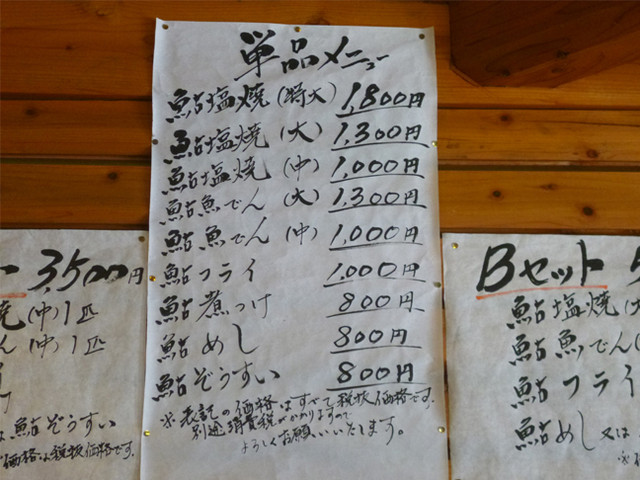 単品メニュー
鮎塩焼(特大) 1,800円
鮎塩焼(大) 1,300円
鮎塩焼(中) 1,000円
鮎魚でん(大) 1,300円
鮎魚でん(中) 1,000円
鮎フライ 1,000円
鮎煮つけ 800円
鮎めし 800円
鮎ぞうすい 800円
※表記の価格はすべて税抜価格です。
別途消費税がかかりますので
よろしくお願いいたします。
3,500円
焼(中)1匹
ん(中)1匹
鮎ぞうすい
価格は税抜価格です。
Bセット
鮎塩焼(大
鮎魚でん(
鮎フライ
鮎めし又は
※価